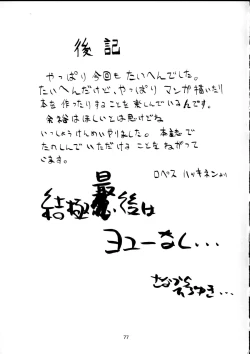 後記
やっぱり今回もたいへんでした。
たいへんだけど、やっぱりマンガ描いたり
本を作ったりすることを楽しんでいるんです。
余裕はほしいとは思けどね
いっしょうけんめいやりました。本誌で
たのしんでいただけることをねがって
います。
ロペス ハッキネンより
結極最後は
ヨユーなし・・・
77